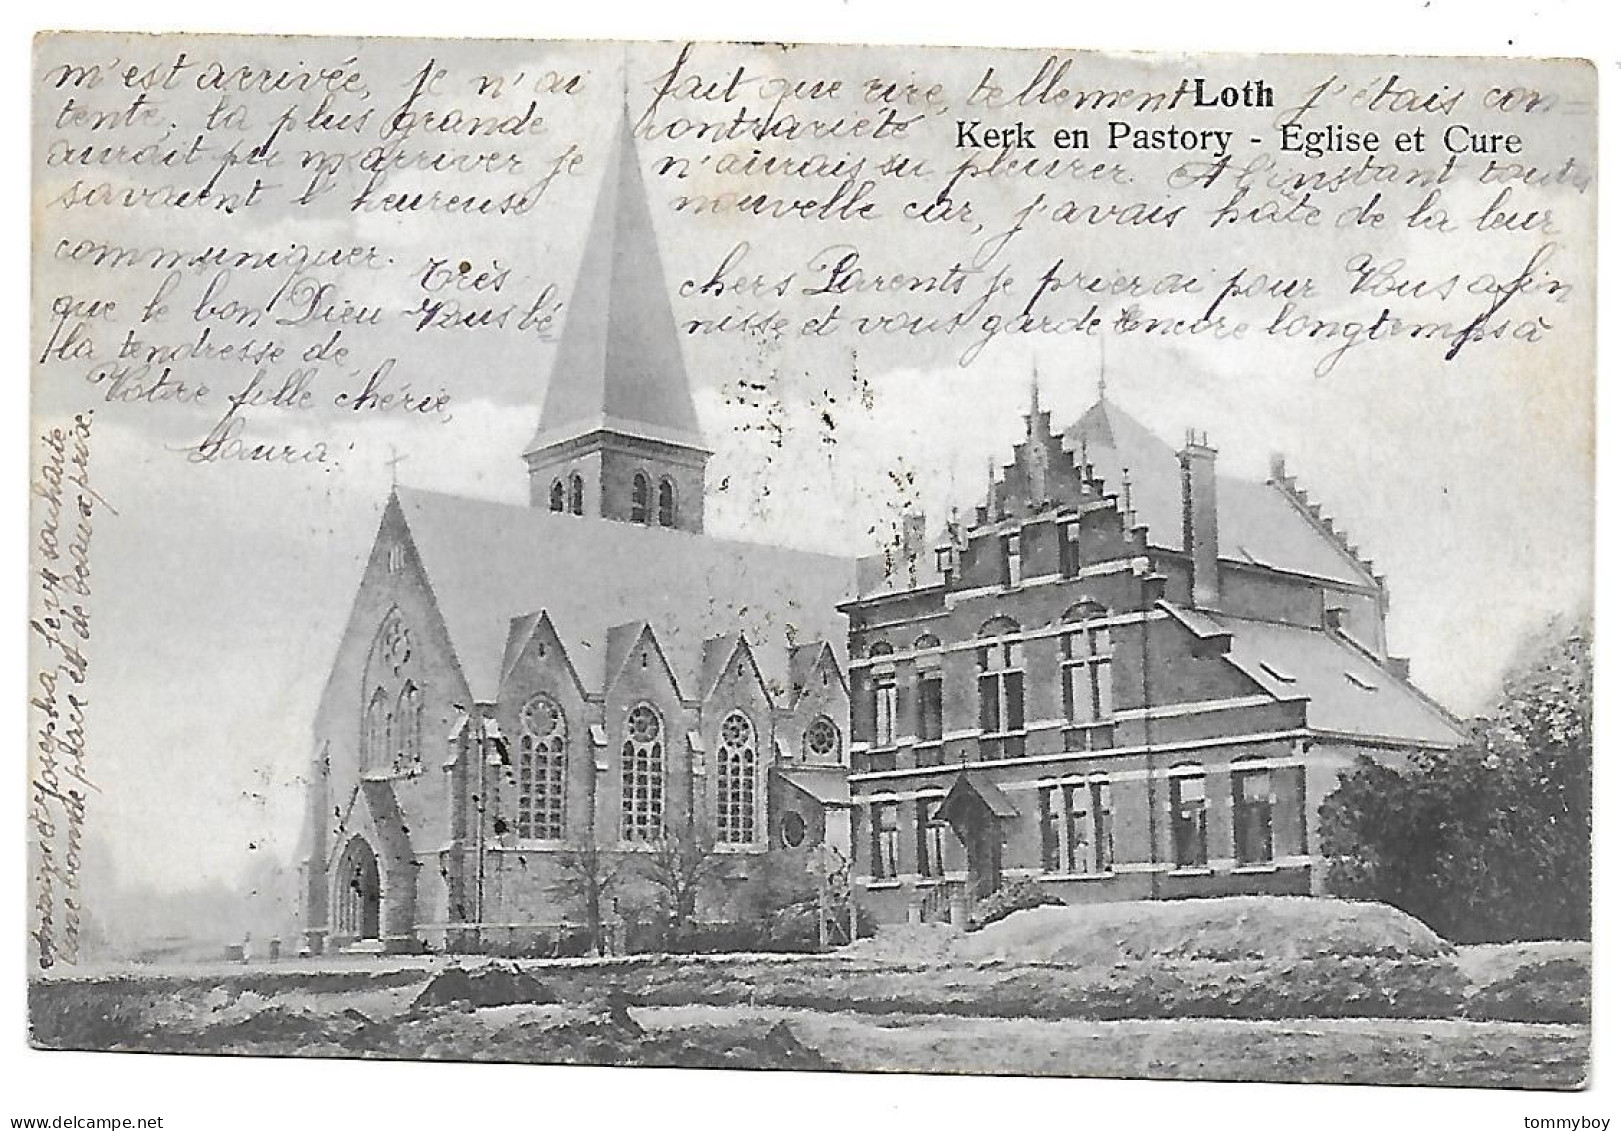 m'est arrivée, je n'ai fait que rire, tellement j'étais con=
Loth
tente, la plus grande contrariété
Kerk en Pastory - Eglise et Cure
aurait pu m'arriver je n'aurais su pleurer. A l'instant toutes
savaient l'heureuse nouvelle car, j'avais hâte de la leur
communiquer.
Très chers Parents je prierai pour Vous afin
que le bon Dieu Vous bénisse et vous garde encore longtemps à
la tendresse de
Votre fille chérie,
Laura.
et Josepha Levy souhaite
une bonne pluie et de beaux prix.
tommyboy